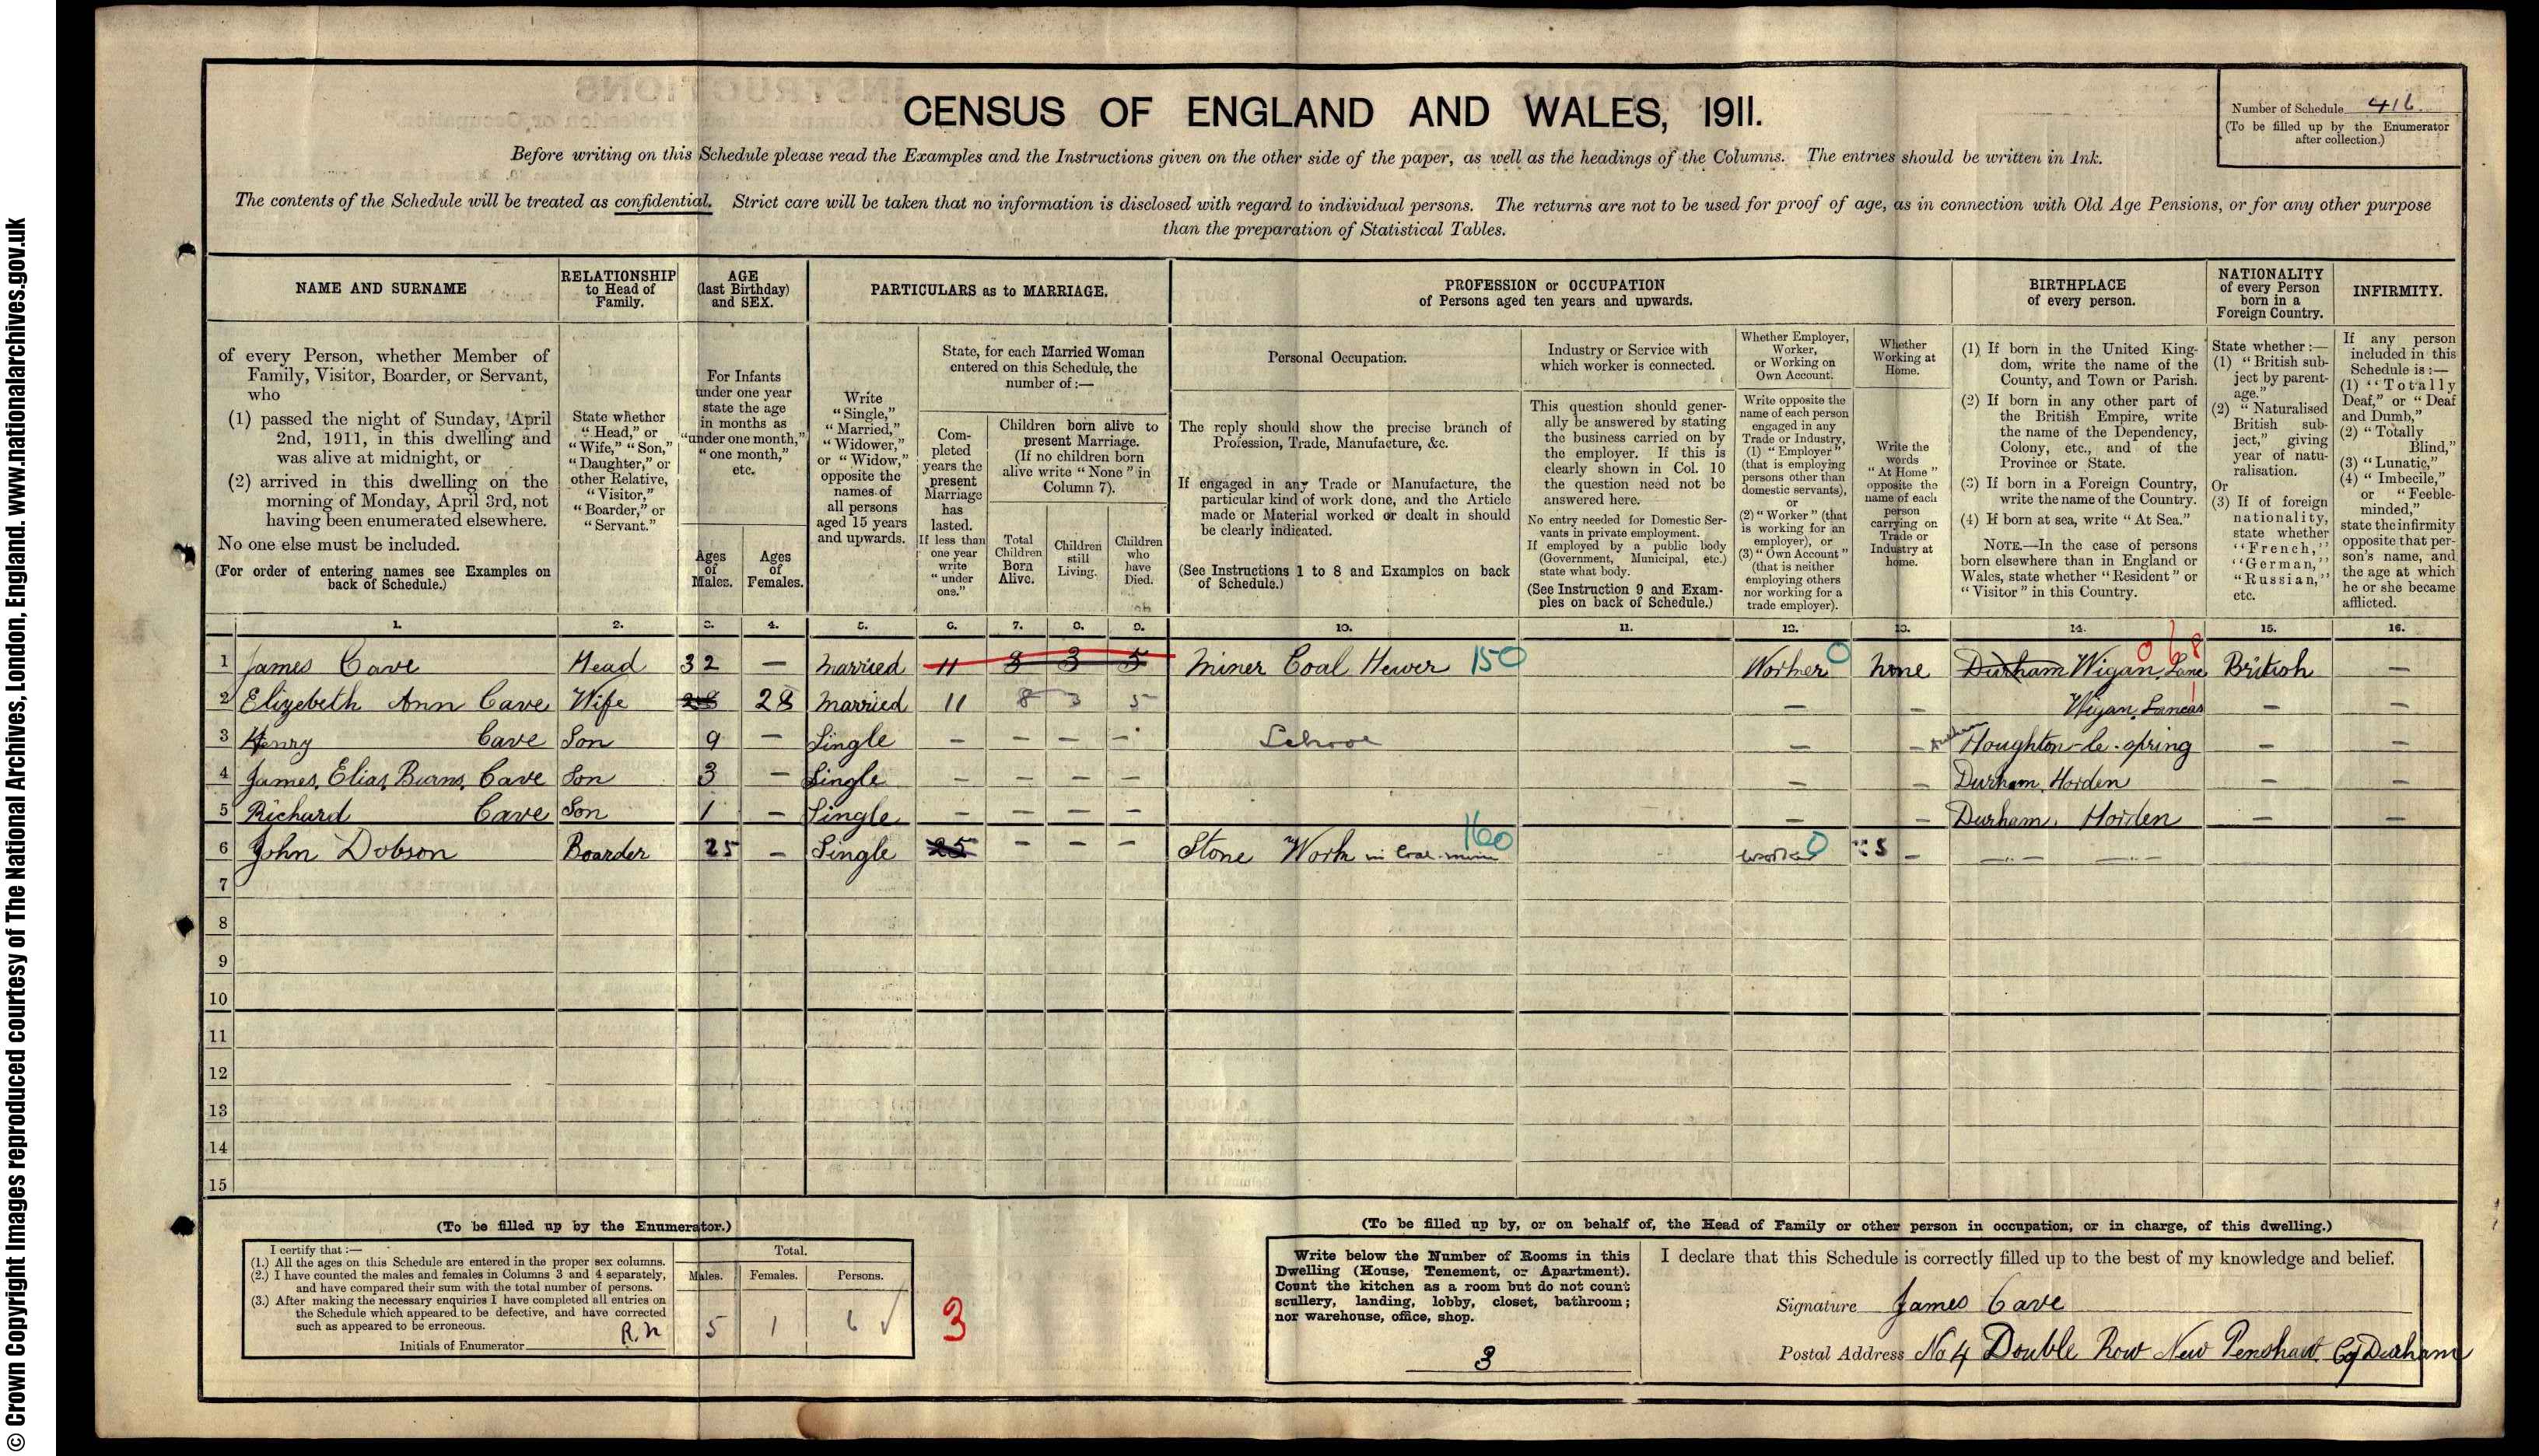 © Crown Copyright Images reproduced courtesy of The National Archives, London, England. www.nationalarchives.gov.uk
CENSUS OF ENGLAND AND WALES, 1911.
Number of Schedule 416.
(To be filled up by the Enumerator
after collection.)
Before writing on this Schedule please read the Examples and the Instructions given on the other side of the paper, as well as the headings of the Columns. The entries should be written in Ink.
The contents of the Schedule will be treated as confidential. Strict care will be taken that no information is disclosed with regard to individual persons. The returns are not to be used for proof of age, as in connection with Old Age Pensions, or for any other purpose
than the preparation of Statistical Tables.
NAME AND SURNAME
of every Person, whether Member of
Family, Visitor, Boarder, or Servant,
who
(1) passed the night of Sunday, April
2nd, 1911, in this dwelling and
was alive at midnight, or
(2) arrived in this dwelling on the
morning of Monday, April 3rd, not
having been enumerated elsewhere.
No one else must be included.
(For order of entering names see Examples on
back of Schedule.)
RELATIONSHIP
to Head of
Family.
State whether
"Head," or
"Wife," "Son,"
"Daughter," or
other Relative,
"Visitor,"
"Boarder," or
"Servant."
AGE
(last Birthday)
and SEX.
For Infants
under one year
state the age
in months as
"under one month,"
"one month,"
etc.
Ages
of
Males.
Ages
of
Females.
PARTICULARS as to MARRIAGE.
Write
"Single,"
"Married,"
"Widower,"
or "Widow,"
opposite the
names of
all persons
aged 15 years
and upwards.
State, for each Married Woman
entered on this Schedule, the
number of:—
Com-
pleted
years the
present
Marriage
has
lasted.
If less than
one year
write
"under
one."
Children born alive to
present Marriage.
(If no children born
alive write "None" in
Column 7).
Total
Children
Born
Alive.
Children
still
Living.
Children
who
have
Died.
PROFESSION or OCCUPATION
of Persons aged ten years and upwards.
Personal Occupation.
The reply should show the precise branch of
Profession, Trade, Manufacture, &c.
If engaged in any Trade or Manufacture, the
particular kind of work done, and the Article
made or Material worked or dealt in should
be clearly indicated.
(See Instructions 1 to 8 and Examples on back
of Schedule.)
Industry or Service with
which worker is connected.
This question should gener-
ally be answered by stating
the business carried on by
the employer. If this is
clearly shown in Col. 10
the question need not be
answered here.
No entry needed for Domestic Ser-
vants in private employment.
If employed by a public body
(Government, Municipal, etc.)
state what body.
(See Instruction 9 and Exam-
ples on back of Schedule.)
Whether Employer,
Worker,
or Working on
Own Account.
Write opposite the
name of each person
engaged in any
Trade or Industry,
(1) "Employer"
(that is employing
persons other than
domestic servants),
or
(2) "Worker" (that
is working for an
employer), or
(3) "Own Account"
(that is neither
employing others
nor working for a
trade employer).
Whether
Working at
Home.
Write the
words
"At Home"
opposite the
name of each
person
carrying on
Trade or
Industry at
home.
BIRTHPLACE
of every person.
(1) If born in the United King-
dom, write the name of the
County, and Town or Parish.
(2) If born in any other part of
the British Empire, write
the name of the Dependency,
Colony, etc., and of the
Province or State.
(3) If born in a Foreign Country,
write the name of the Country.
(4) If born at sea, write "At Sea."
NOTE.—In the case of persons
born elsewhere than in England or
Wales, state whether "Resident" or
"Visitor" in this Country.
NATIONALITY
of every Person
born in a
Foreign Country.
State whether:—
(1) "British sub-
ject by parent-
age."
(2) "Naturalised
British sub-
ject," giving
year of natu-
ralisation.
Or
(3) If of foreign
nationality,
state whether
"French,"
"German,"
"Russian,"
etc.
INFIRMITY.
If any person
included in this
Schedule is:—
(1) "Totally
Deaf," or "Deaf
and Dumb,"
(2) "Totally
Blind,"
(3) "Lunatic,"
(4) "Imbecile,"
or "Feeble-
minded,"
state the infirmity
opposite that per-
son's name, and
the age at which
he or she became
afflicted.
1. 2. 3. 4. 5. 6. 7. 8. 9. 10. 11. 12. 13. 14. 15. 16.
1 James Cave Head 32 — Married 11 8 3 5 Miner Coal Hewer 150 Worker 0 None Durham Wigan Lanc 068 British —
2 Elizebeth Ann Cave Wife 28 28 Married 11 8 3 5 — — Wigan, Lancas — —
3 Henry Cave Son 9 — Single — — — — School — — Durham Houghton-le-Spring — —
4 James, Elias, Burns, Cave Son 3 — Single — — — — — — Durham, Horden — —
5 Richard Cave Son 1 — Single — — — — — — Durham, Horden — —
6 John Dobson Boarder 25 — Single 25 — — — Stone Work in Coal mine 160 worker 0 —
7
8
9
10
11
12
13
14
15
(To be filled up by the Enumerator.)
I certify that:—
(1.) All the ages on this Schedule are entered in the proper sex columns.
(2.) I have counted the males and females in Columns 3 and 4 separately,
and have compared their sum with the total number of persons.
(3.) After making the necessary enquiries I have completed all entries on
the Schedule which appeared to be defective, and have corrected
such as appeared to be erroneous.
Initials of Enumerator R.N
Total.
Males. Females. Persons.
5 1 6
3
(To be filled up by, or on behalf of, the Head of Family or other person in occupation, or in charge, of this dwelling.)
Write below the Number of Rooms in this
Dwelling (House, Tenement, or Apartment).
Count the kitchen as a room but do not count
scullery, landing, lobby, closet, bathroom;
nor warehouse, office, shop.
3
I declare that this Schedule is correctly filled up to the best of my knowledge and belief.
Signature James Cave
Postal Address No 4 Double Row New Penshaw Co Durham